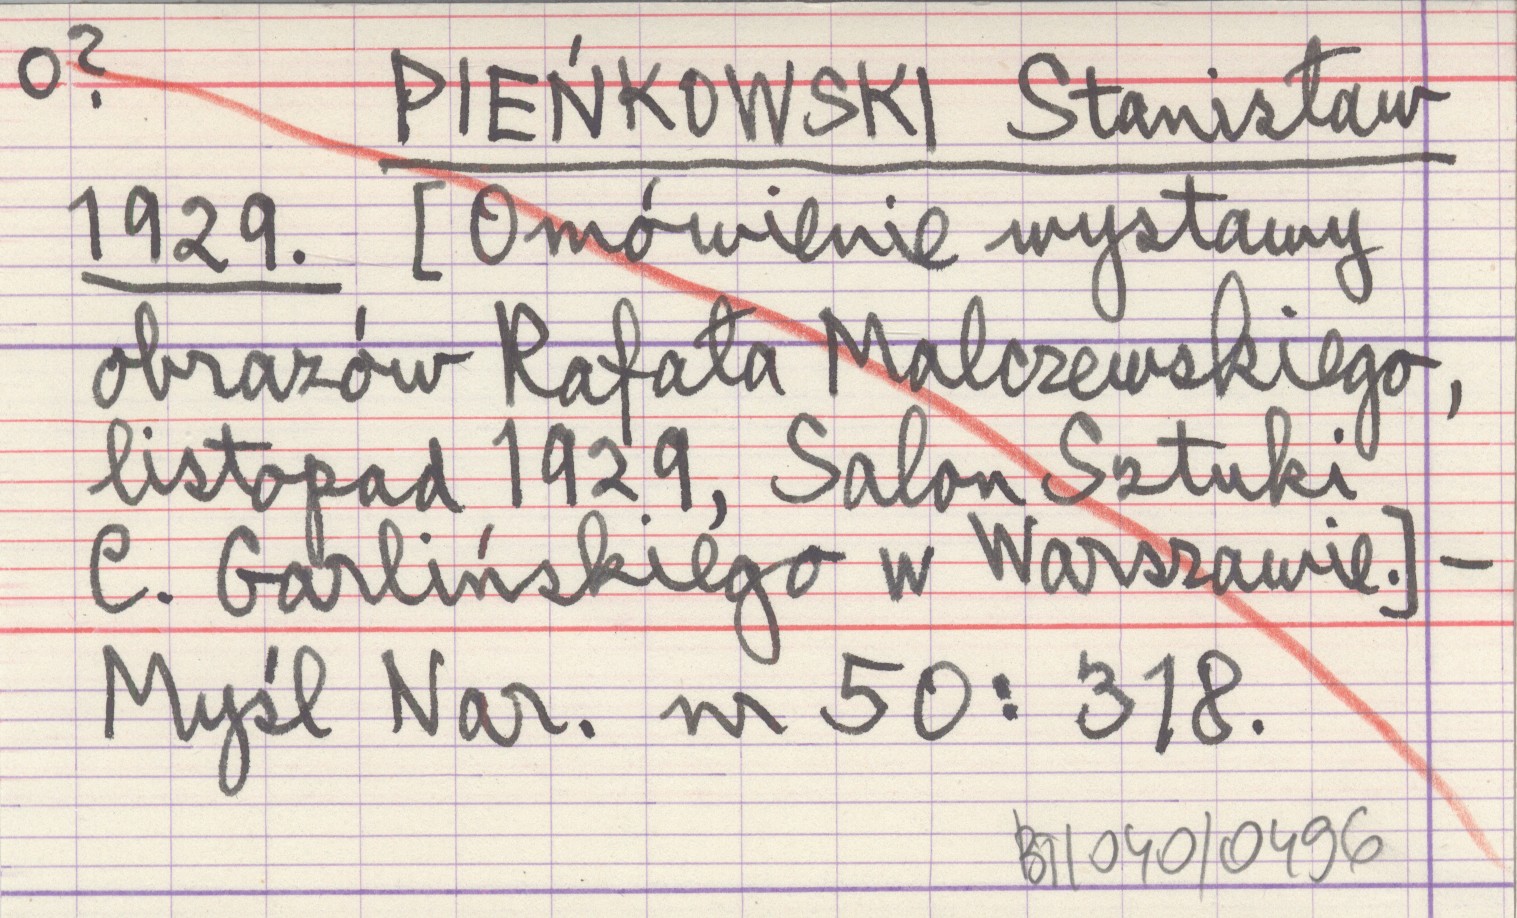 O? PIEŃKOWSKI Stanisław
1929. [Omówienie wystawy
obrazów Rafała Malczewskiego,
listopad 1929, Salon Sztuki
C. Garlińskiego w Warszawie.] –
Myśl Nar. nr 50: 318.
BT/040/0496